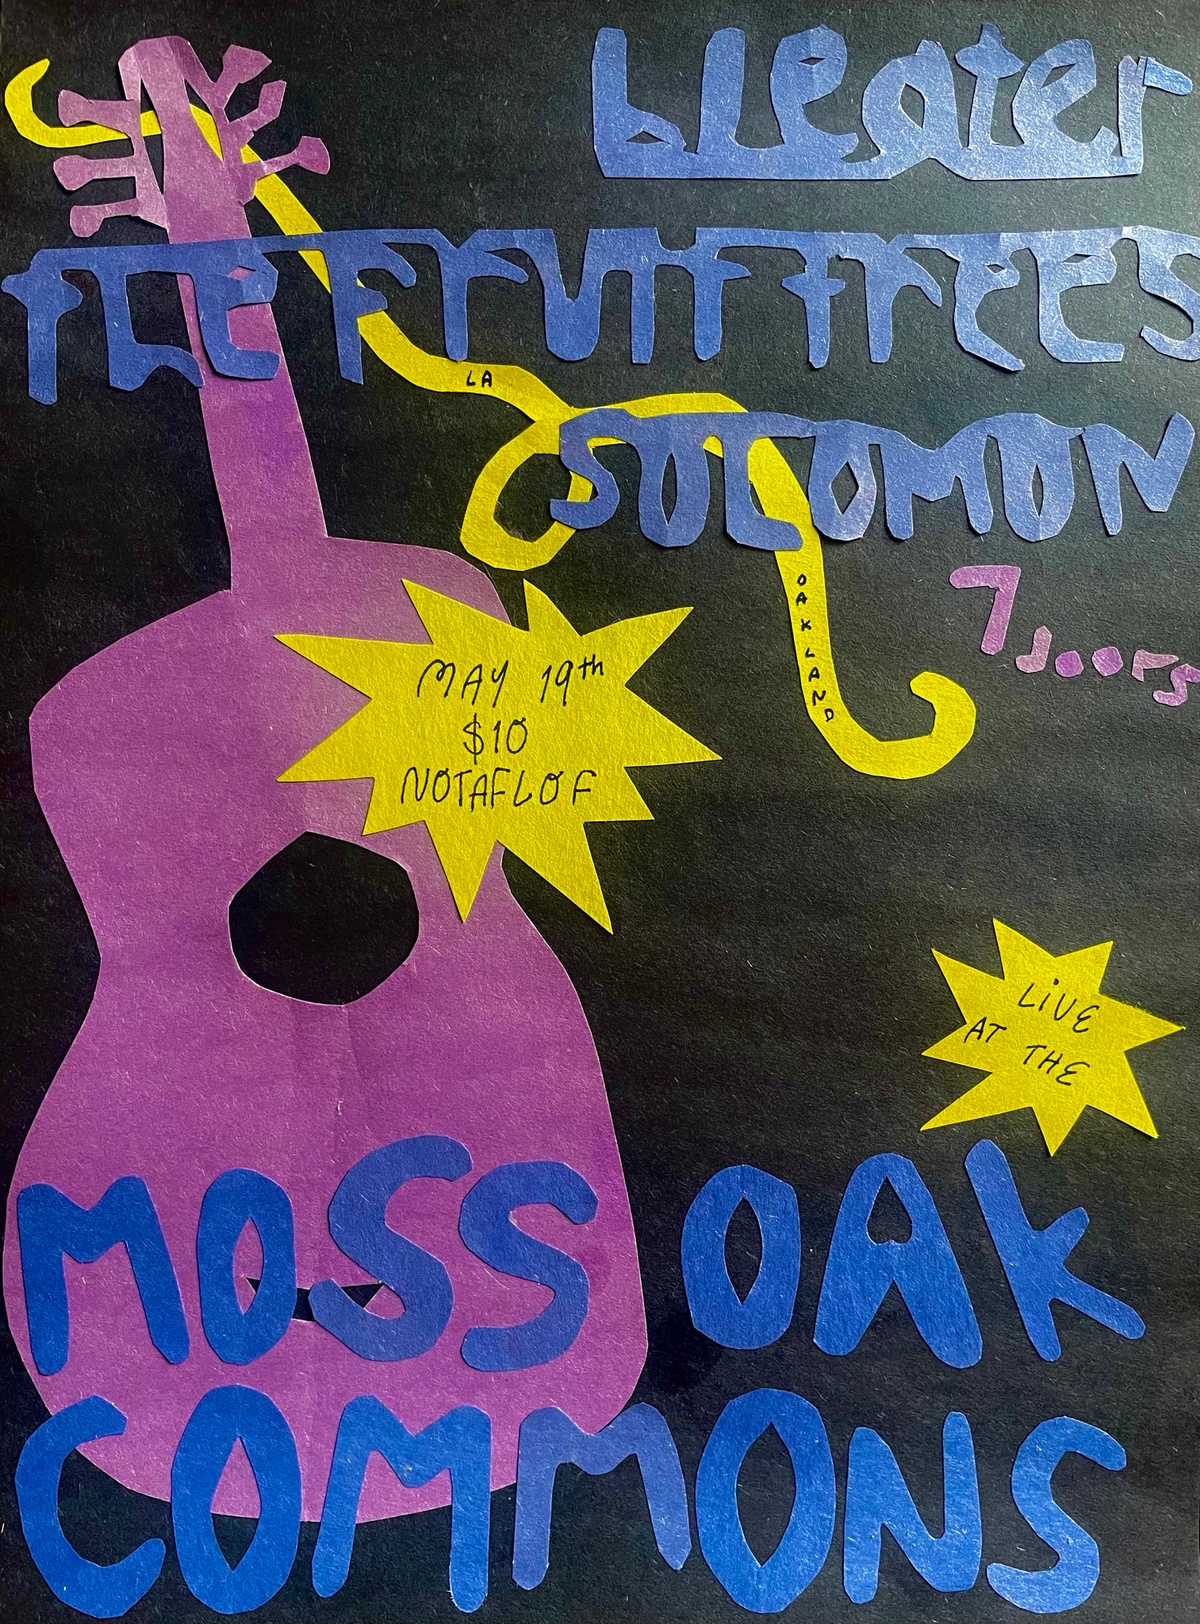 bleater
the fruit trees
LA
SOLOMON
OAKLAND
7 doors
MAY 19th
$10
NOTAFLOF
LiVE
AT THE
MOSS OAK
COMMONS